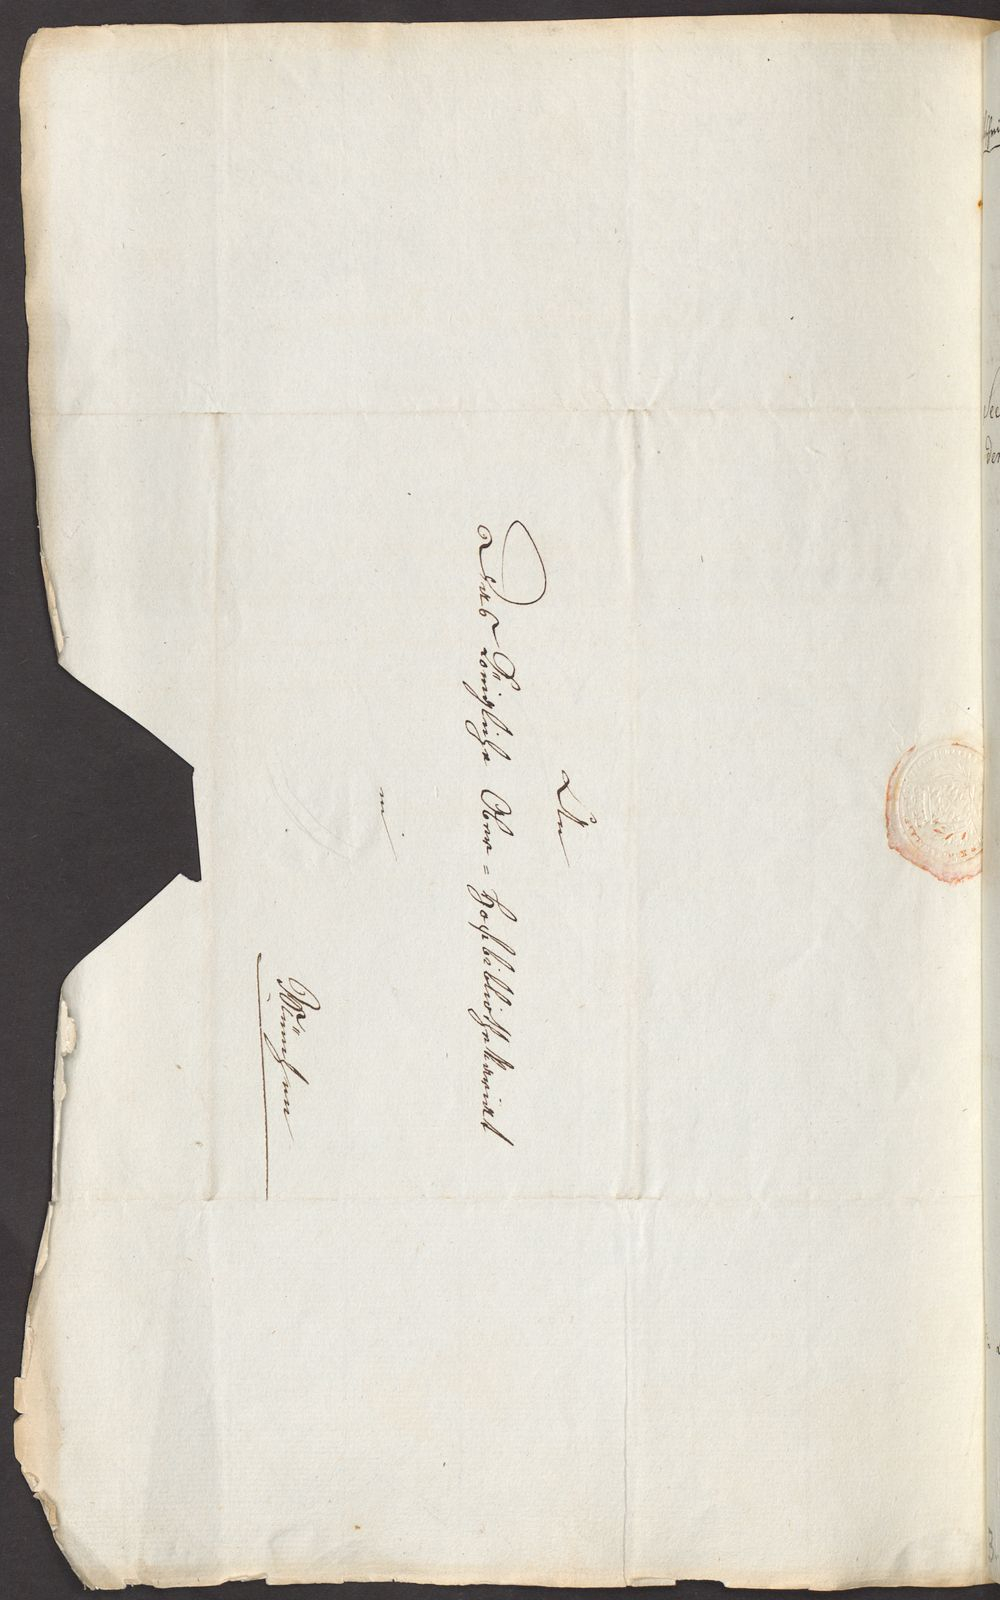 An
das Königliche Ober-Hofbibliothekariat
in
München